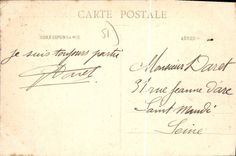 CARTE POSTALE
CORRESPONDANCE
ADRESSE
51
je suis toujours partie
Daret
Monsieur Daret
91 rue Jeanne d'arc
Saint Mandé
Seine